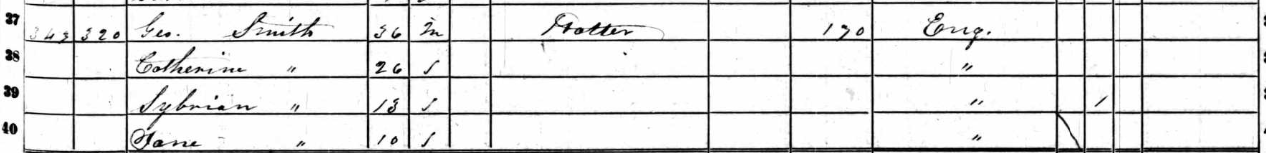 37 343 320 Geo. Smith 36 m Hatter 170 Eng.
38 Catherine " 26 f "
39 Sybrian " 13 f " 1
40 Jane " 10 f "